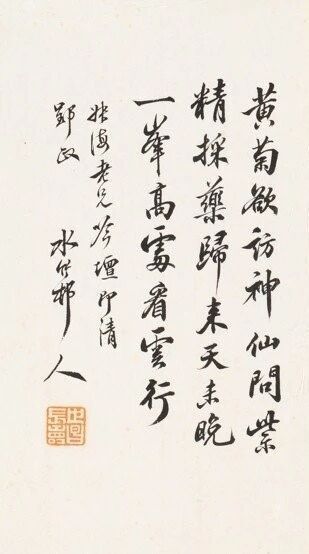 黃菊欲訪神仙問紫
精採藥歸來天未晚
一峯高處看雲行
海老兄吟壇即清
郢政
水竹邨人